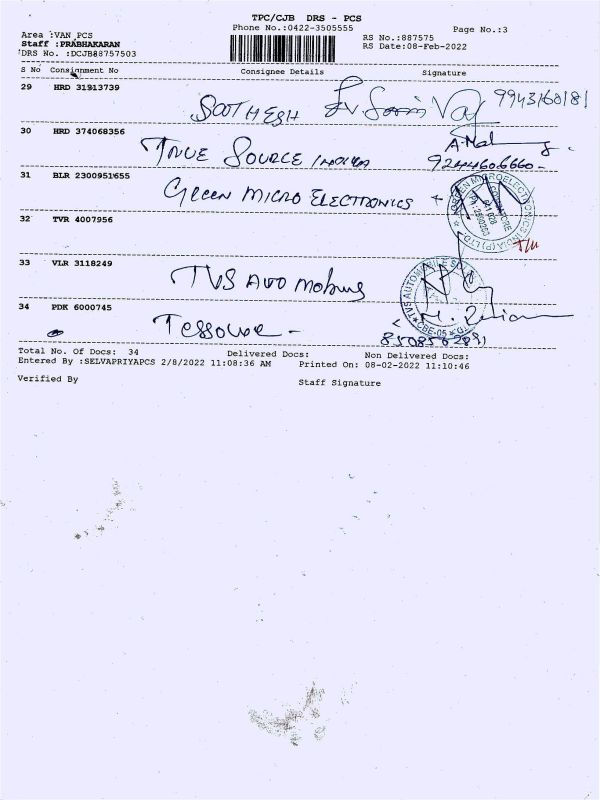 TPC/CJB DRS - PCS
Phone No.:0422-3505555
Page No.:3
Area :VAN PCS
RS No.:887575
Staff :PRABHAKARAN
RS Date:08-Feb-2022
DRS No. :DCJB88757503
S No Consignment No Consignee Details Signature
29 HRD 31913739
9943160181
30 HRD 374068356
TRUE SOURCE INDIA
9244606660-
31 BLR 2300951655
GREEN MICRO ELECTRONICS
32 TVR 4007956
33 VLR 3118249
TVS AUTO
34 PDK 6000745
Total No. Of Docs: 34 Delivered Docs: Non Delivered Docs:
Entered By :SELVAPRIYAPCS 2/8/2022 11:08:36 AM Printed On: 08-02-2022 11:10:46
Verified By Staff Signature